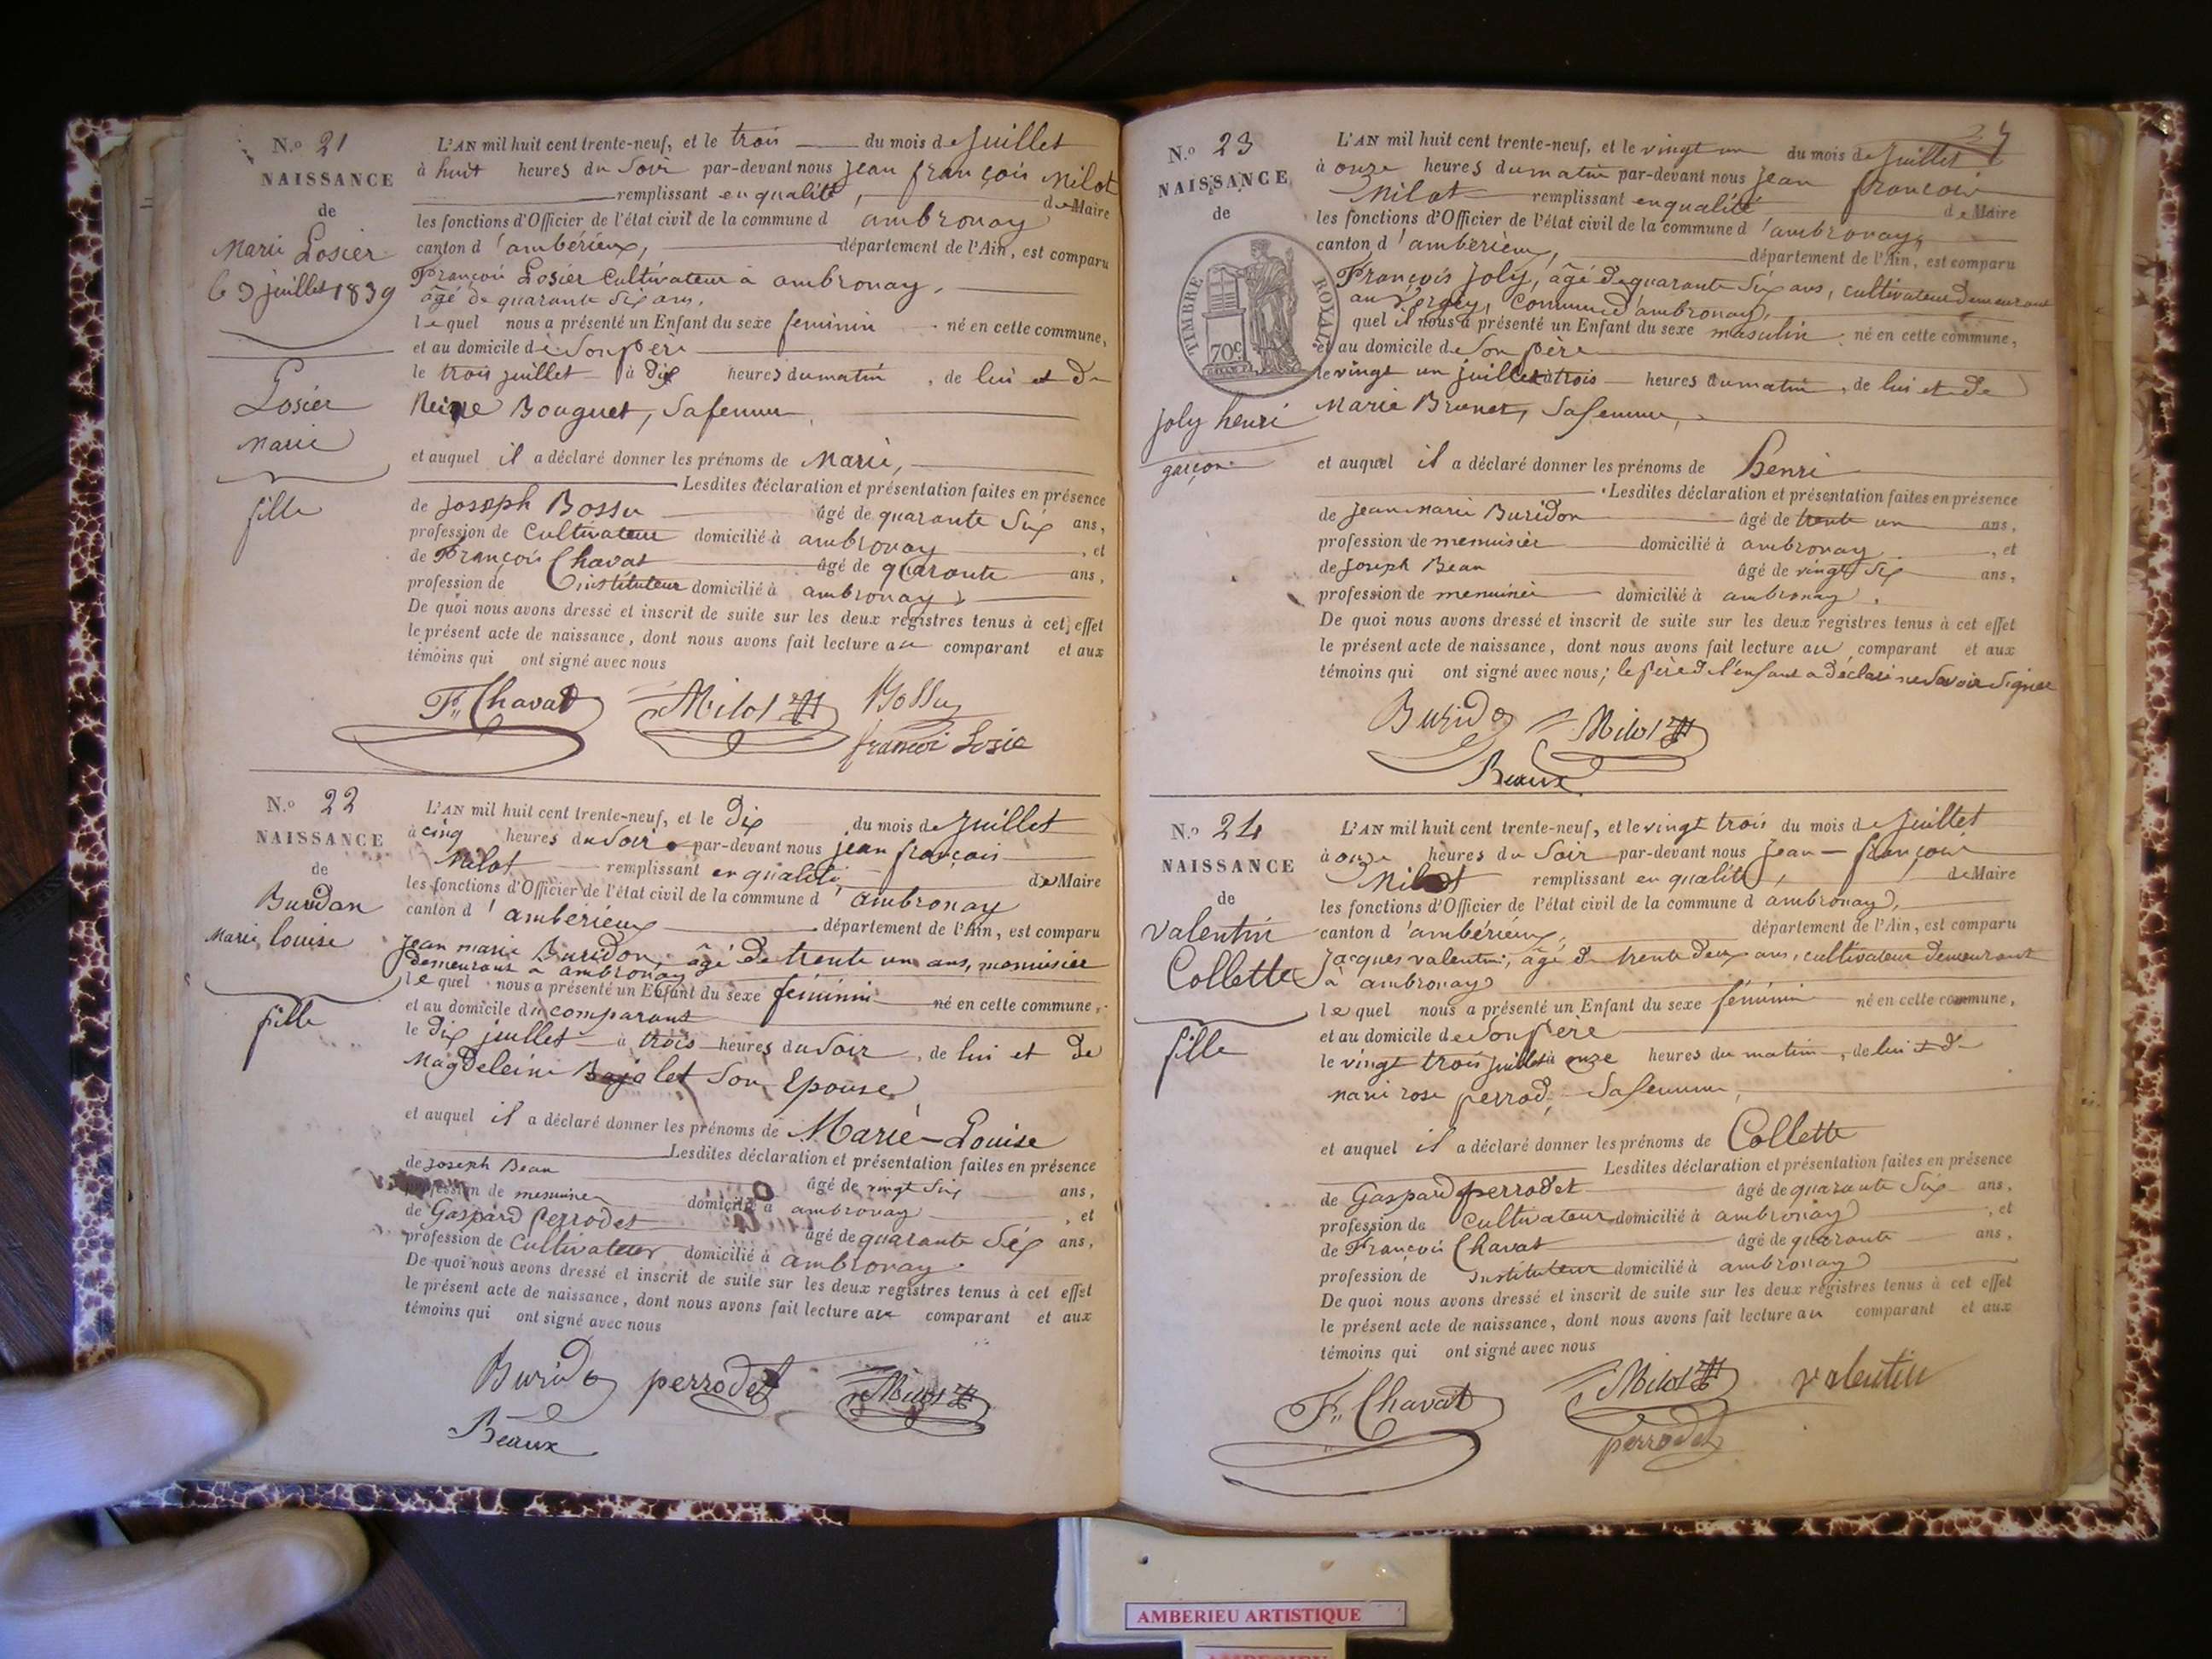 N.o 21
NAISSANCE
de
Marie Losier
le 3 juillet 1839
Losier
Marie
fille
L'AN mil huit cent trente-neuf, et le trois du mois de juillet
à huit heures du Soir par-devant nous jean françois Milot
remplissant en qualité de Maire
les fonctions d'Officier de l'état civil de la commune d ambronay
canton d'ambérieux, département de l'Ain, est comparu
François Losier Cultivateur à ambronay,
âgé de quarante Six ans,
lequel nous a présenté un Enfant du sexe feminin né en cette commune,
et au domicile de Son père
le trois juillet à dix heures du matin, de lui et de
Reine Bouguet, Sa femme,
et auquel il a déclaré donner les prénoms de Marie,
Lesdites déclaration et présentation faites en présence
de joseph Bossu âgé de quarante Six ans,
profession de Cultivateur domicilié à ambronay, et
de François Chavat âgé de quarante ans,
profession de instituteur domicilié à ambronay
De quoi nous avons dressé et inscrit de suite sur les deux registres tenus à cet effet
le présent acte de naissance, dont nous avons fait lecture au comparant et aux
témoins qui ont signé avec nous
F. Chavat Milot Bossu
francoi Losie
N.o 22
NAISSANCE
de
Buridon
Marie, louise
fille
L'AN mil huit cent trente-neuf, et le Dix du mois de juillet
à cinq heures du Soir par-devant nous jean françois
Milot remplissant en qualité de Maire
les fonctions d'Officier de l'état civil de la commune d'ambronay
canton d'ambérieux département de l'Ain, est comparu
Jean marie Buridon, âgé de trente un ans, menuisier
demeurant à ambronay
lequel nous a présenté un Enfant du sexe féminin né en cette commune,
et au domicile du comparant
le dix juillet à trois heures du Soir, de lui et de
Magdeleine Bajolet Son Epouse,
et auquel il a déclaré donner les prénoms de Marie-Louise
Lesdites déclaration et présentation faites en présence
de joseph Beau âgé de vingt Six ans,
profession de menuisier domicilié à ambronay, et
de Gaspard perrodet âgé de quarante Six ans,
profession de Cultivateur domicilié à ambronay.
De quoi nous avons dressé et inscrit de suite sur les deux registres tenus à cet effet
le présent acte de naissance, dont nous avons fait lecture au comparant et aux
témoins qui ont signé avec nous
Burido perrodet Milot
Beaux
N.o 23
NAISSANCE
de
TIMBRE ROYAL
70c
joly henri
garçon
L'AN mil huit cent trente-neuf, et le vingt un du mois de juillet
à onze heures du matin par-devant nous jean francois
Milot remplissant en qualité de Maire
les fonctions d'Officier de l'état civil de la commune d'ambronay,
canton d'ambérieux, département de l'Ain, est comparu
François joly, âgé de quarante Six ans, cultivateur demeurant
au Vorgey, Commune d'ambronay,
quel il nous a présenté un Enfant du sexe masculin né en cette commune,
et au domicile de Son père
le vingt un juillet à trois heures du matin, de lui et de
Marie Brunet, Sa femme,
et auquel il a déclaré donner les prénoms de Henri
Lesdites déclaration et présentation faites en présence
de jean marie Buridon âgé de trente un ans,
profession de menuisier domicilié à ambronay, et
de joseph Beau âgé de vingt Six ans,
profession de menuisier domicilié à ambronay.
De quoi nous avons dressé et inscrit de suite sur les deux registres tenus à cet effet
le présent acte de naissance, dont nous avons fait lecture au comparant et aux
témoins qui ont signé avec nous; le père de l'enfant a déclaré ne Savoir Signer
Burido Milot
Beaux
N.o 24
NAISSANCE
de
valentin
Collette
fille
L'AN mil huit cent trente-neuf, et le vingt trois du mois de juillet
à onze heures du Soir par-devant nous jean-françois
Milot remplissant en qualité, de Maire
les fonctions d'Officier de l'état civil de la commune d ambronay,
canton d'ambérieux, département de l'Ain, est comparu
jacques valentin, âgé de trente deux ans, cultivateur demeurant
à ambronay
lequel nous a présenté un Enfant du sexe féminin né en cette commune,
et au domicile de Son père
le vingt trois juillet à onze heures du matin, de lui et de
marie rose perrod, Sa femme,
et auquel il a déclaré donner les prénoms de Collette
Lesdites déclaration et présentation faites en présence
de Gaspard perrodet âgé de quarante Six ans,
profession de Cultivateur domicilié à ambronay, et
de François Chavat âgé de quarante ans,
profession de instituteur domicilié à ambronay
De quoi nous avons dressé et inscrit de suite sur les deux registres tenus à cet effet
le présent acte de naissance, dont nous avons fait lecture au comparant et aux
témoins qui ont signé avec nous
F. Chavat Milot valentin
perrodet
AMBERIEU ARTISTIQUE